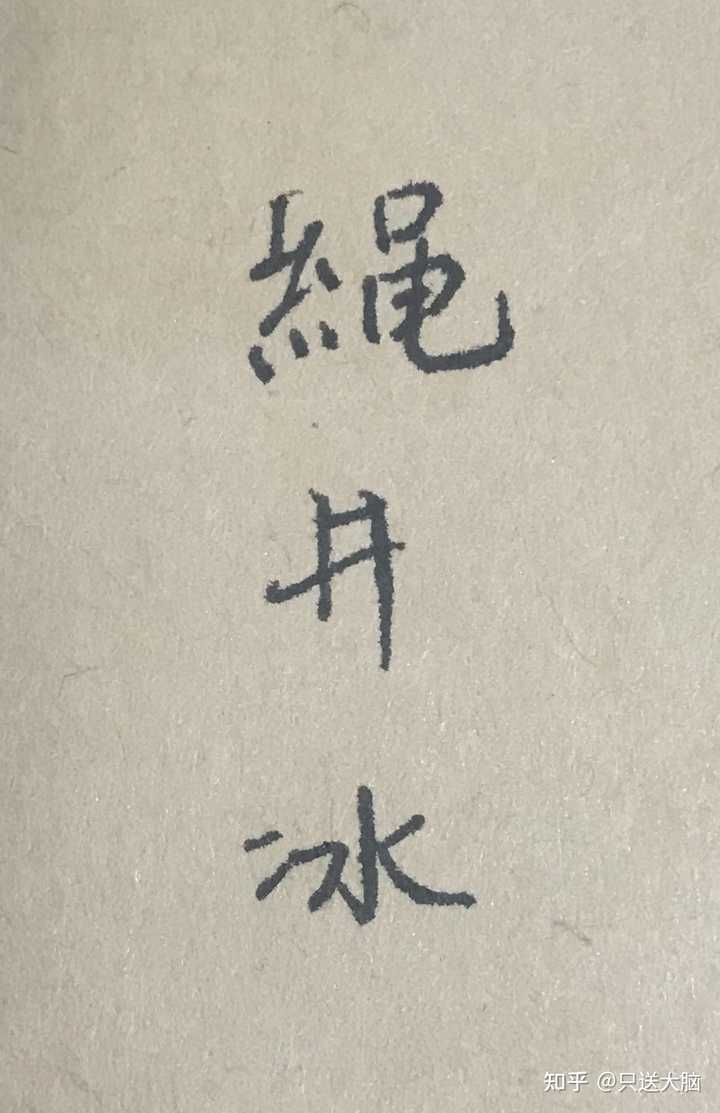 縄
井
冰
知乎 @只送大脑